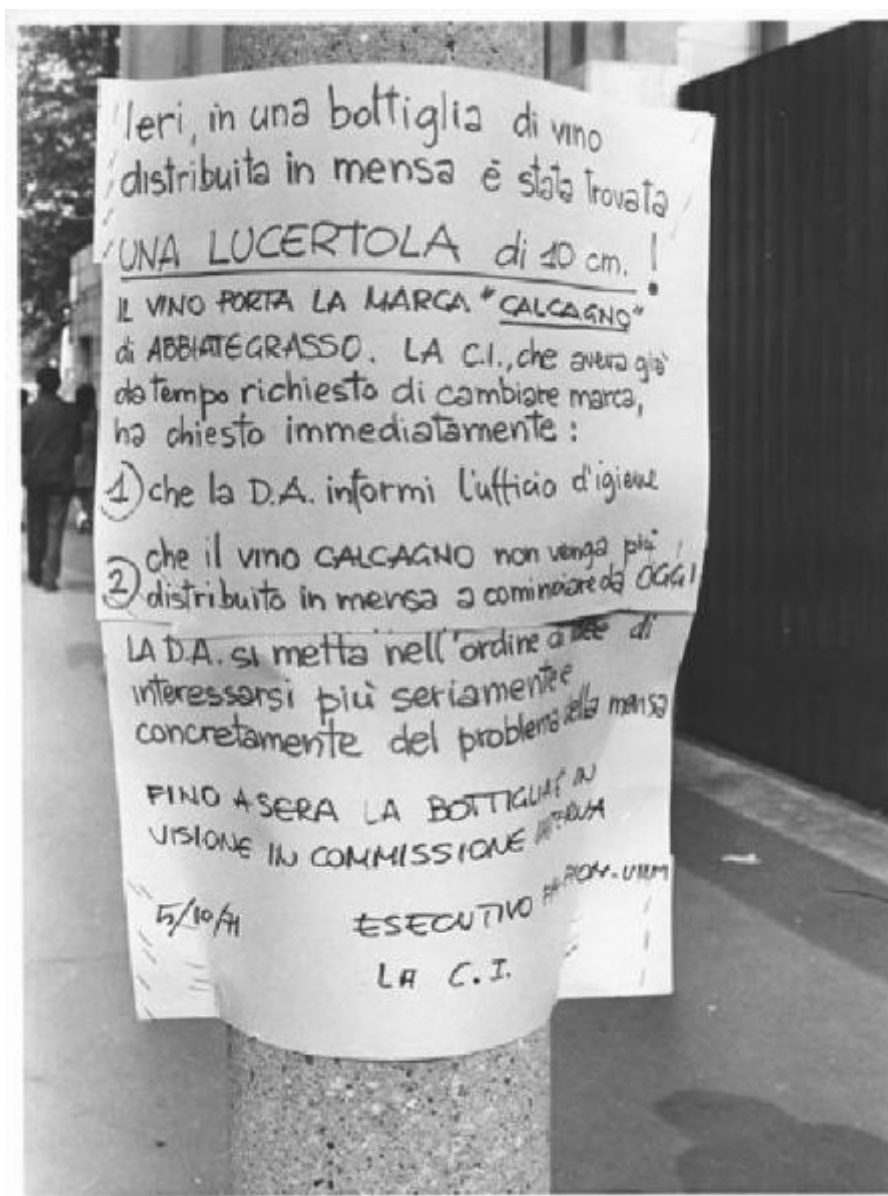 Ieri, in una bottiglia di vino
distribuita in mensa è stata trovata
UNA LUCERTOLA di 10 cm. !
IL VINO PORTA LA MARCA "CALCAGNO"
di ABBIATEGRASSO. LA C.I., che aveva già
da tempo richiesto di cambiare marca,
ha chiesto immediatamente :
1) che la D.A. informi l'ufficio d'igiene
2) che il vino CALCAGNO non venga più
distribuito in mensa a cominciare da OGGI
LA D.A. si metta nell'ordine di idee di
interessarsi più seriamente e
concretamente del problema della mensa
FINO A SERA LA BOTTIGLIA È IN
VISIONE IN COMMISSIONE INTERNA
5/10/71 ESECUTIVO FIM-FIOM-UILM
LA C.I.